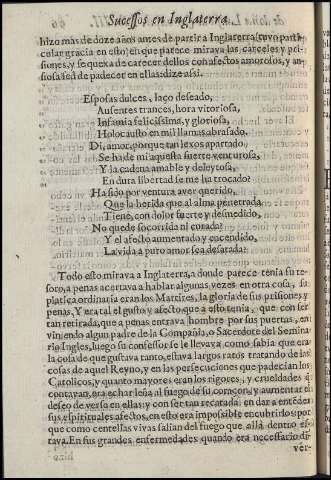 Sucessos en Inglaterra
hizo mas de doze años antes de partir a Inglaterra, tuvo parti-
cular gracia en esto, en que parece mirava las carceles y pri-
siones, y se quexa de carecer dellos con afectos amorosos, y an-
siosa sed de padecer en ellas: dize assi.
Esposas dulces, laço deseado,
Ausentes trances, hora vitoriosa,
Infamia felicissima, y gloriosa,
Holocausto en mil llamas abrasado.
Di, amor, porque tan lexos apartado
Se ha de mi aquesta suerte venturosa,
Y la cadena amable y deleytosa,
En dura libertad se me ha trocado?
Ha sido por ventura aver querido,
Que la herida que al alma penetrada
Tiene, con dolor fuerte y desmedido,
No quede socorrida ni curada?
Y el afecto aumentado y encendido,
La vida a puro amor sea desatada?
Todo esto mirava a Inglaterra, a donde parece tenia su te-
soro, a penas acertava a hablar algunas vezes en otra cosa, su
platica ordinaria eran los Martires, la gloria de sus prisiones y
penas, Y era tal el gusto y afecto que a esto tenia, que con ser
tan retirada, que a penas entrava hombre por sus puertas, en
viniendo algun padre de la Compañia, o Sacerdote del Semina
rio Ingles, luego su confessor se le llevava como sabia que era
la cosa de que gustava tanto, estava largos ratos tratando de las
cosas de aquel Reyno, y en las persecuciones que padecian los
Catolicos, y quanto mayores eran los rigores, y crueldades q̃
contavan, era echar leña al fuego de su coraçon, y aumentar el
deseo de verse en ellas: y con ser tan recatada en dar a entẽder
sus espirituales afectos, en esto era impossible encubrirlos: por
que como centellas vivas salian del fuego que allà dentro es-
tava. En sus grandes enfermedades quando era necessario di-
ver-